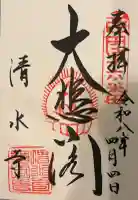 奉拝
令和八年
四月四日
大悲閣
清水寺